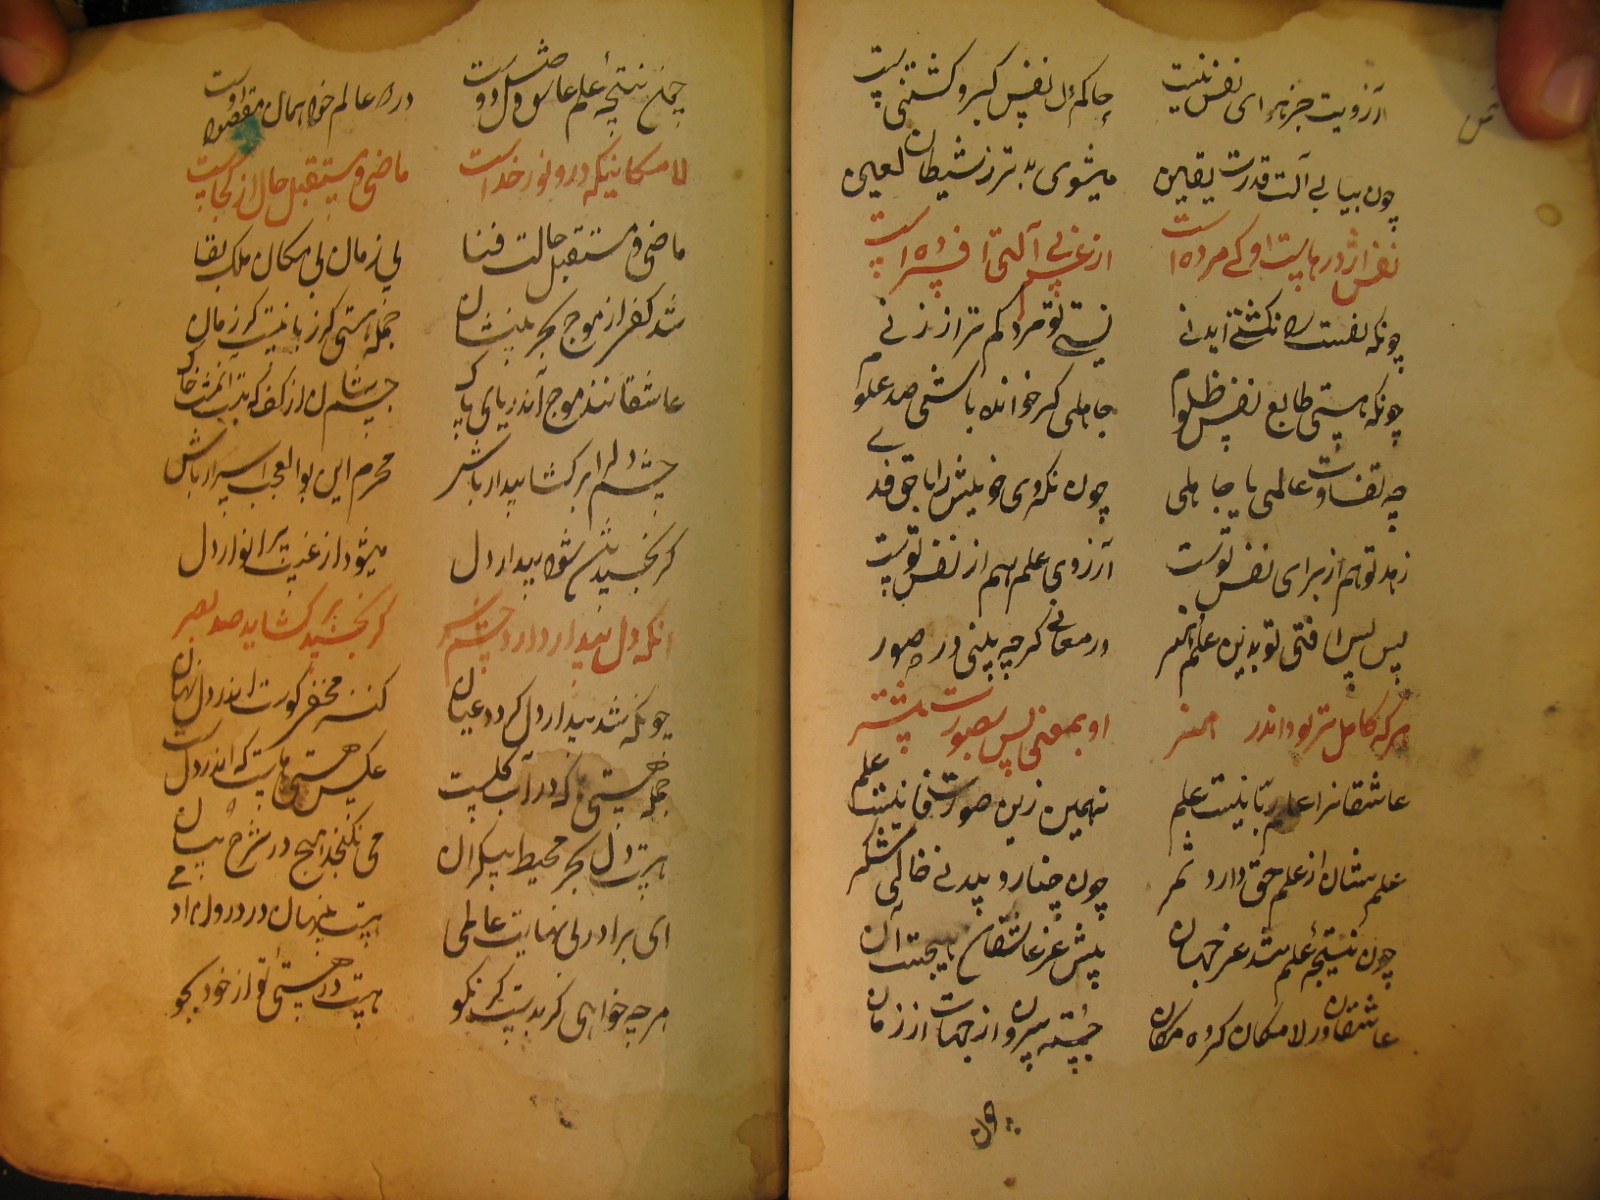 آرزویت جز برای نفس نیست حاکم دل نفس گبر و کشتنی است
چون بیابی آلت قدرت یقین میشوی بدتر ز شیطان لعین
نفس اژدرهاست او کی مرده است از غم بی آلتی افسرده است
چونکه نفست را نکشتی ای دنی نیستی تو مرد کمتر از زنی
چونکه هستی طابع نفس ظلوم جاهلی گر خوانده باشی صد علوم
چه تفاوت عالمی یا جاهلی چون نکردی خویش را با حق
زهد تو هم از برای نفس توست آرزوی علم هم از نفس توست
پس پس افتی تو بدین علم در معانی گرچه بینی در صور
هرکه کاملتر بود اندر هنر او بمعنی پس بصورت پیشتر
عاشقانرا علم ربانیست علم نه همین زین صورت فانیست علم
علمشان از علم حق دارد ثمر چون
چون نتیجهٔ علم شد عز جهان پیش عز عاشقان هیچست آن
عاشقان در لامکان کرده مکان جسته بیرون از جهات از زمان
چون نتیجهٔ علم عاشق وصل اوست در دو عالم خود همان مقصود اوست
لامکانیکه درو نور خداست ماضی و مستقبل حال از کجاست
ماضی و مستقبل حالت فنا بی زمان بی مکان ملک بقا
شد کف از موج بحر بی‌نشان جمله هستی کز
عاشقانند موج آن دریای پاک جسمشان از کف که
چشم دلرا برگشا بیدار باش محرم این بوالعجب اسرار باش
گر بخسپد تن شود بیدار دل میشود از غیب پر انوار دل
آنکه دل بیدار دارد چشم سر گر بخسپد برگشاید صد بصر
چونکه شد بیدار دل گردد عیان کنز مخفی کوست اندر دل نهان
جمله هستی که در آب گلست عکس هستی‌هاست که اندر دلست
هست دل بحر محیط بیکران می نگنجد هیچ در شرح بیان
ای برادر بی نهایت عالمی هست پنهان در درون آدمی
هرچه خواهی گر بدست گر نکو هست در هستی تو از خود بجو